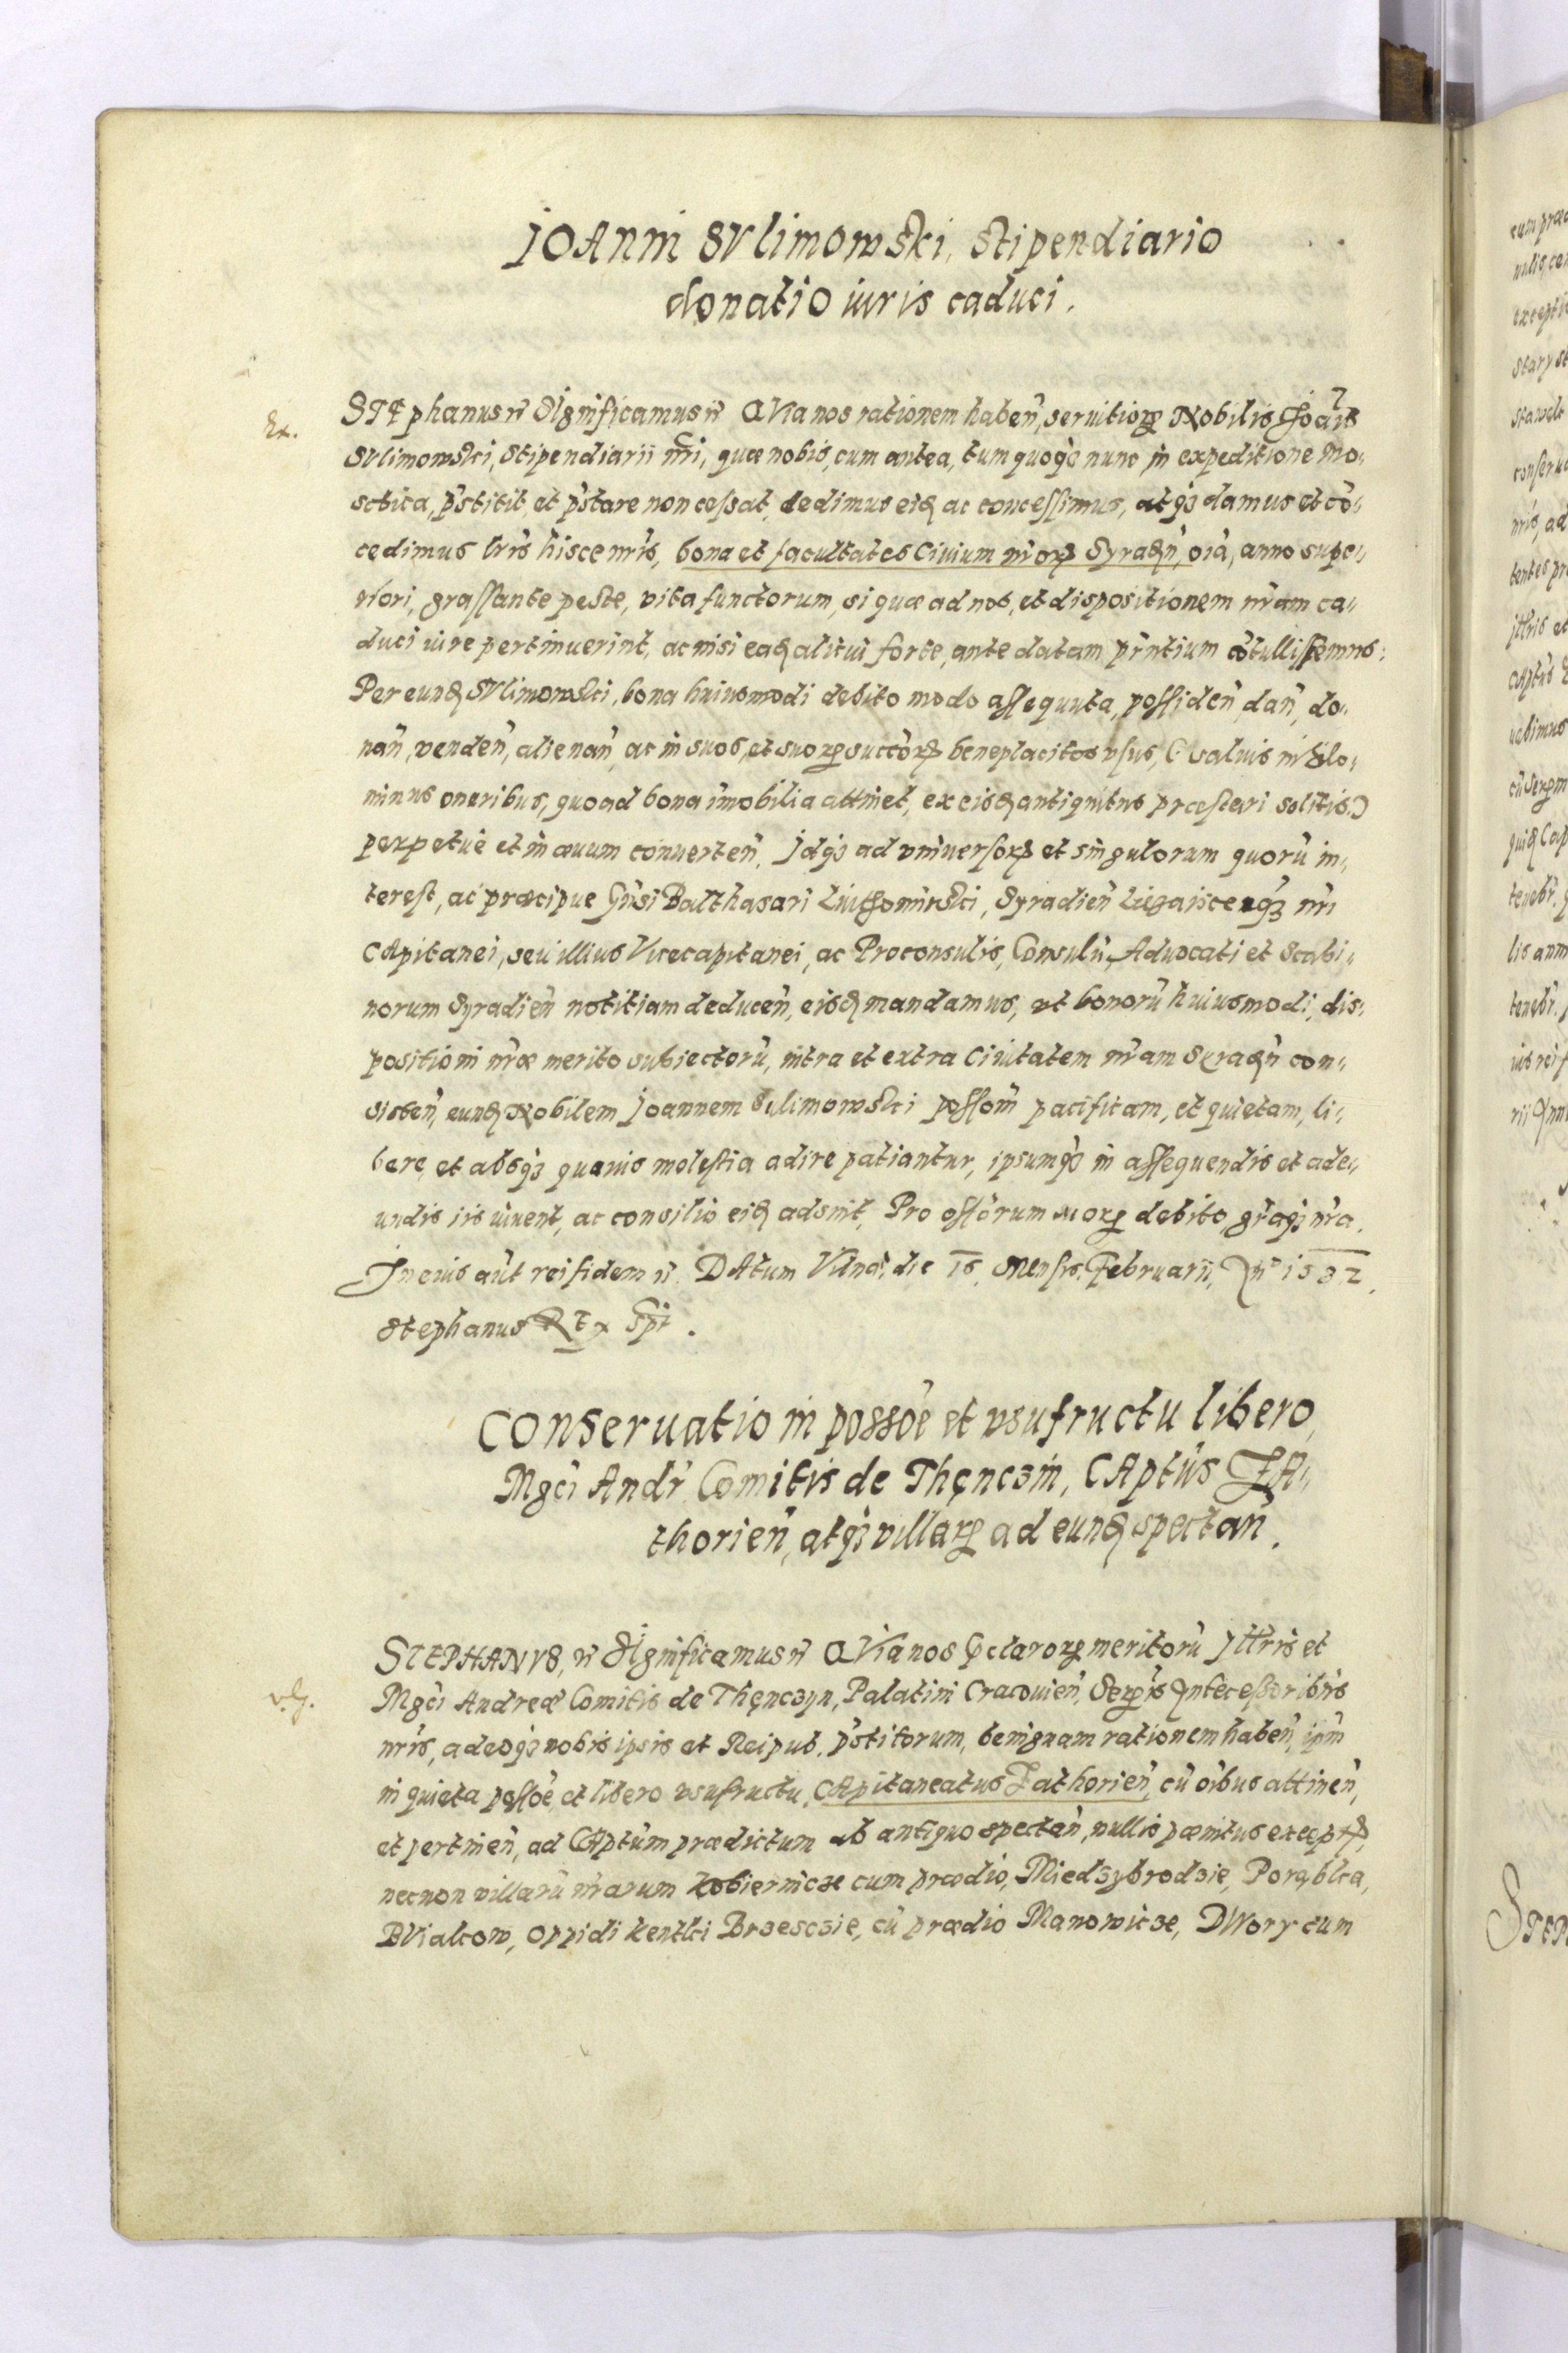 IOAnni SVlimowski, Stipendiario
donatio iuris caduci.
Ex.
STEphanus &c̃ SIgnificamus &c̃ QVia nos rationem haben̄, seruitioꝝ Nobilis Joan̄is
SVlimowski, Stipendiarii nr̄i, quæ nobis, cum antea, tum quoqꝫ nunc in expeditione Mo„
sctica, p̄stitit, et p̄stare non cessat, dedimus eiđ ac concessimus, atqꝫ damus et cō„
cedimus lrīs hisce nrīs, bona et facultates Ciuium nr̄oꝝ Syrađn̄, oīa, anno supe„
riori, grassante peste, vita functorum, si quæ ad nos, et dispositionem nr̄am ca„
duci iure pertinuerint, ac nisi eađ alicui forte, ante datam pr̄ntium cōtullissemus:
Per eunđ SVlimowski, bona huiusmodi debito modo assequuta, possiden̄, dan̄, do„
nan̄, venden̄, alienan̄, ac in suos, et suoꝝ succōꝝ beneplacitos vsus, (: saluis nihilo„
minus oneribus, quoad bona īmobilia attinet, ex eisđ antiquitus præstari solitis:)
perpetuè et in æuum conuerten̄. Idqꝫ ad vniuersoꝝ et singulorum quorū in„
terest, ac præcipue Gn̄si Balthasari Luthomirski, Syradien̄
CApitanei, seu illius Vicecapitanei, ac Proconsulis, Consulū, Aduocati et Scabi„
norum Syradien̄ notitiam deducen̄, eisđ mandamus, vt bonorū huiusmodi, dis„
positioni nr̄æ merito subiectorū, intra et extra Ciuitatem nr̄am Sirađn̄ con„
sisten̄, eunđ Nobilem Joannem Sulimowski possom̄ pacificam, et quietam, li„
bere, et absqꝫ quauis molestia adire patiantur, ipsumqꝫ in assequendis et ade„
undis iis iuuent, ac consilio eiđ adsint, Pro offōrum suoꝝ debito, gr̄aqꝫ nr̄a.
In cuius aūt rei fidem &c̃. DAtum Vilnæ, die 16. Mensis. Februarii, Anō 1582.
Stephanus REx Spt̄.
COnseruatio in possōe et vsufructu libero,
Mgci Andr̄ Comitis de Thęnczin, CAptūs ZA„
thorien̄, atqꝫ villaꝝ ad eunđ spectan̄.
vlg.
STEPHANVS, &c̃ SIgnificamus &c̃ QVia nos p̄claroꝝ meritorū Jllrīs et
Mgci Andreæ Comitis de Thęnczyn, Palatini Cracouien̄, Serꝑis Antecessoribus
nrīs, adeoqꝫ nobis ipsis et Reipub. p̄stitorum, benignam rationem haben̄, ipm̄
in quieta possōe, et libero vsufructu, CApitaneatus Zathorien̄, cū oībus attinen̄,
et pertinen̄, ad CAptūm prædictum ab antiquo spectan̄, nullis pænitus exceptꝭ,
necnon villarū nr̄arum Kobiernicze cum prædio, Miedzybrodzie, Porąbka,
BVlakow, Oppidi Kentski Brzesczie, cū prædio Manowicze, DWory cum